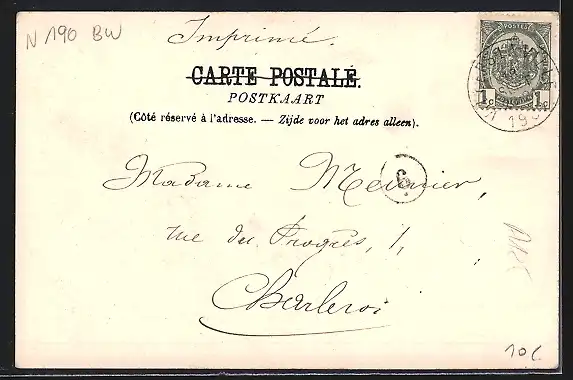 N 190 BW
Imprimé.
CARTE POSTALE.
POSTKAART
(Côté réservé à l'adresse. — Zijde voor het adres alleen).
POSTES
1c 1c
Madame Meunier,
rue du Progrès, 1,
Charleroi
10 (.